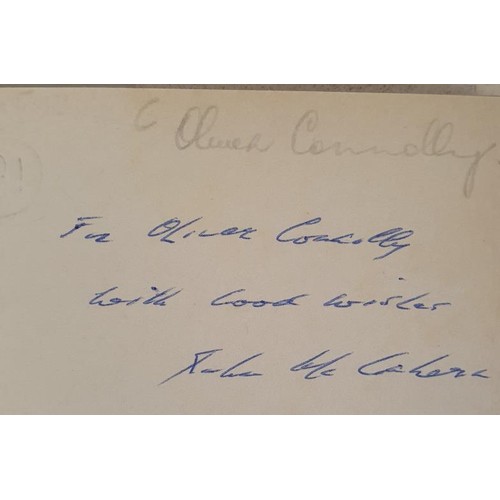 Oliver Connolly.
For Oliver Connolly
with Good wishes
John Mc Gahern